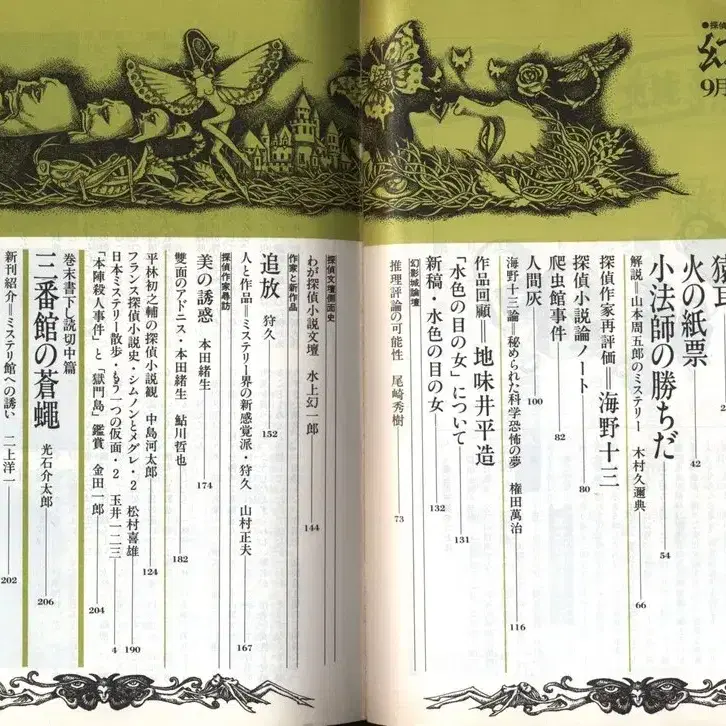 ●探偵
9月
火の紙票 42
小法師の勝ちだ 54
解説=山本周五郎のミステリー 木村久邇典 66
探偵作家再評価=海野十三
探偵小説論ノート 80
爬虫館事件 82
人間灰 100
海野十三論=秘められた科学恐怖の夢 権田萬治 116
作品回顧――地味井平造
「水色の目の女」について 131
新稿・水色の目の女 132
幻影城論壇
推理評論の可能性 尾崎秀樹 73
探偵文壇側面史
わが探偵小説文壇 水上幻一郎 144
作家と新作品
追放 狩久 152
人と作品=ミステリー界の新感覚派・狩久 山村正夫 167
探偵作家尋訪
美の誘惑 本田緒生 174
雙面のアドニス・本田緒生 鮎川哲也 182
平林初之輔の探偵小説観 中島河太郎 124
フランス探偵小説史・シムノンとメグレ・2 松村喜雄 190
日本ミステリー散歩・もう一つの仮面・2 玉井一二三 4
「本陣殺人事件」と「獄門島」鑑賞 金田一郎 204
巻末書下し読切中篇
三番館の蒼蠅 光石介太郎 206
新刊紹介=ミステリ館への誘い 二上洋一 202